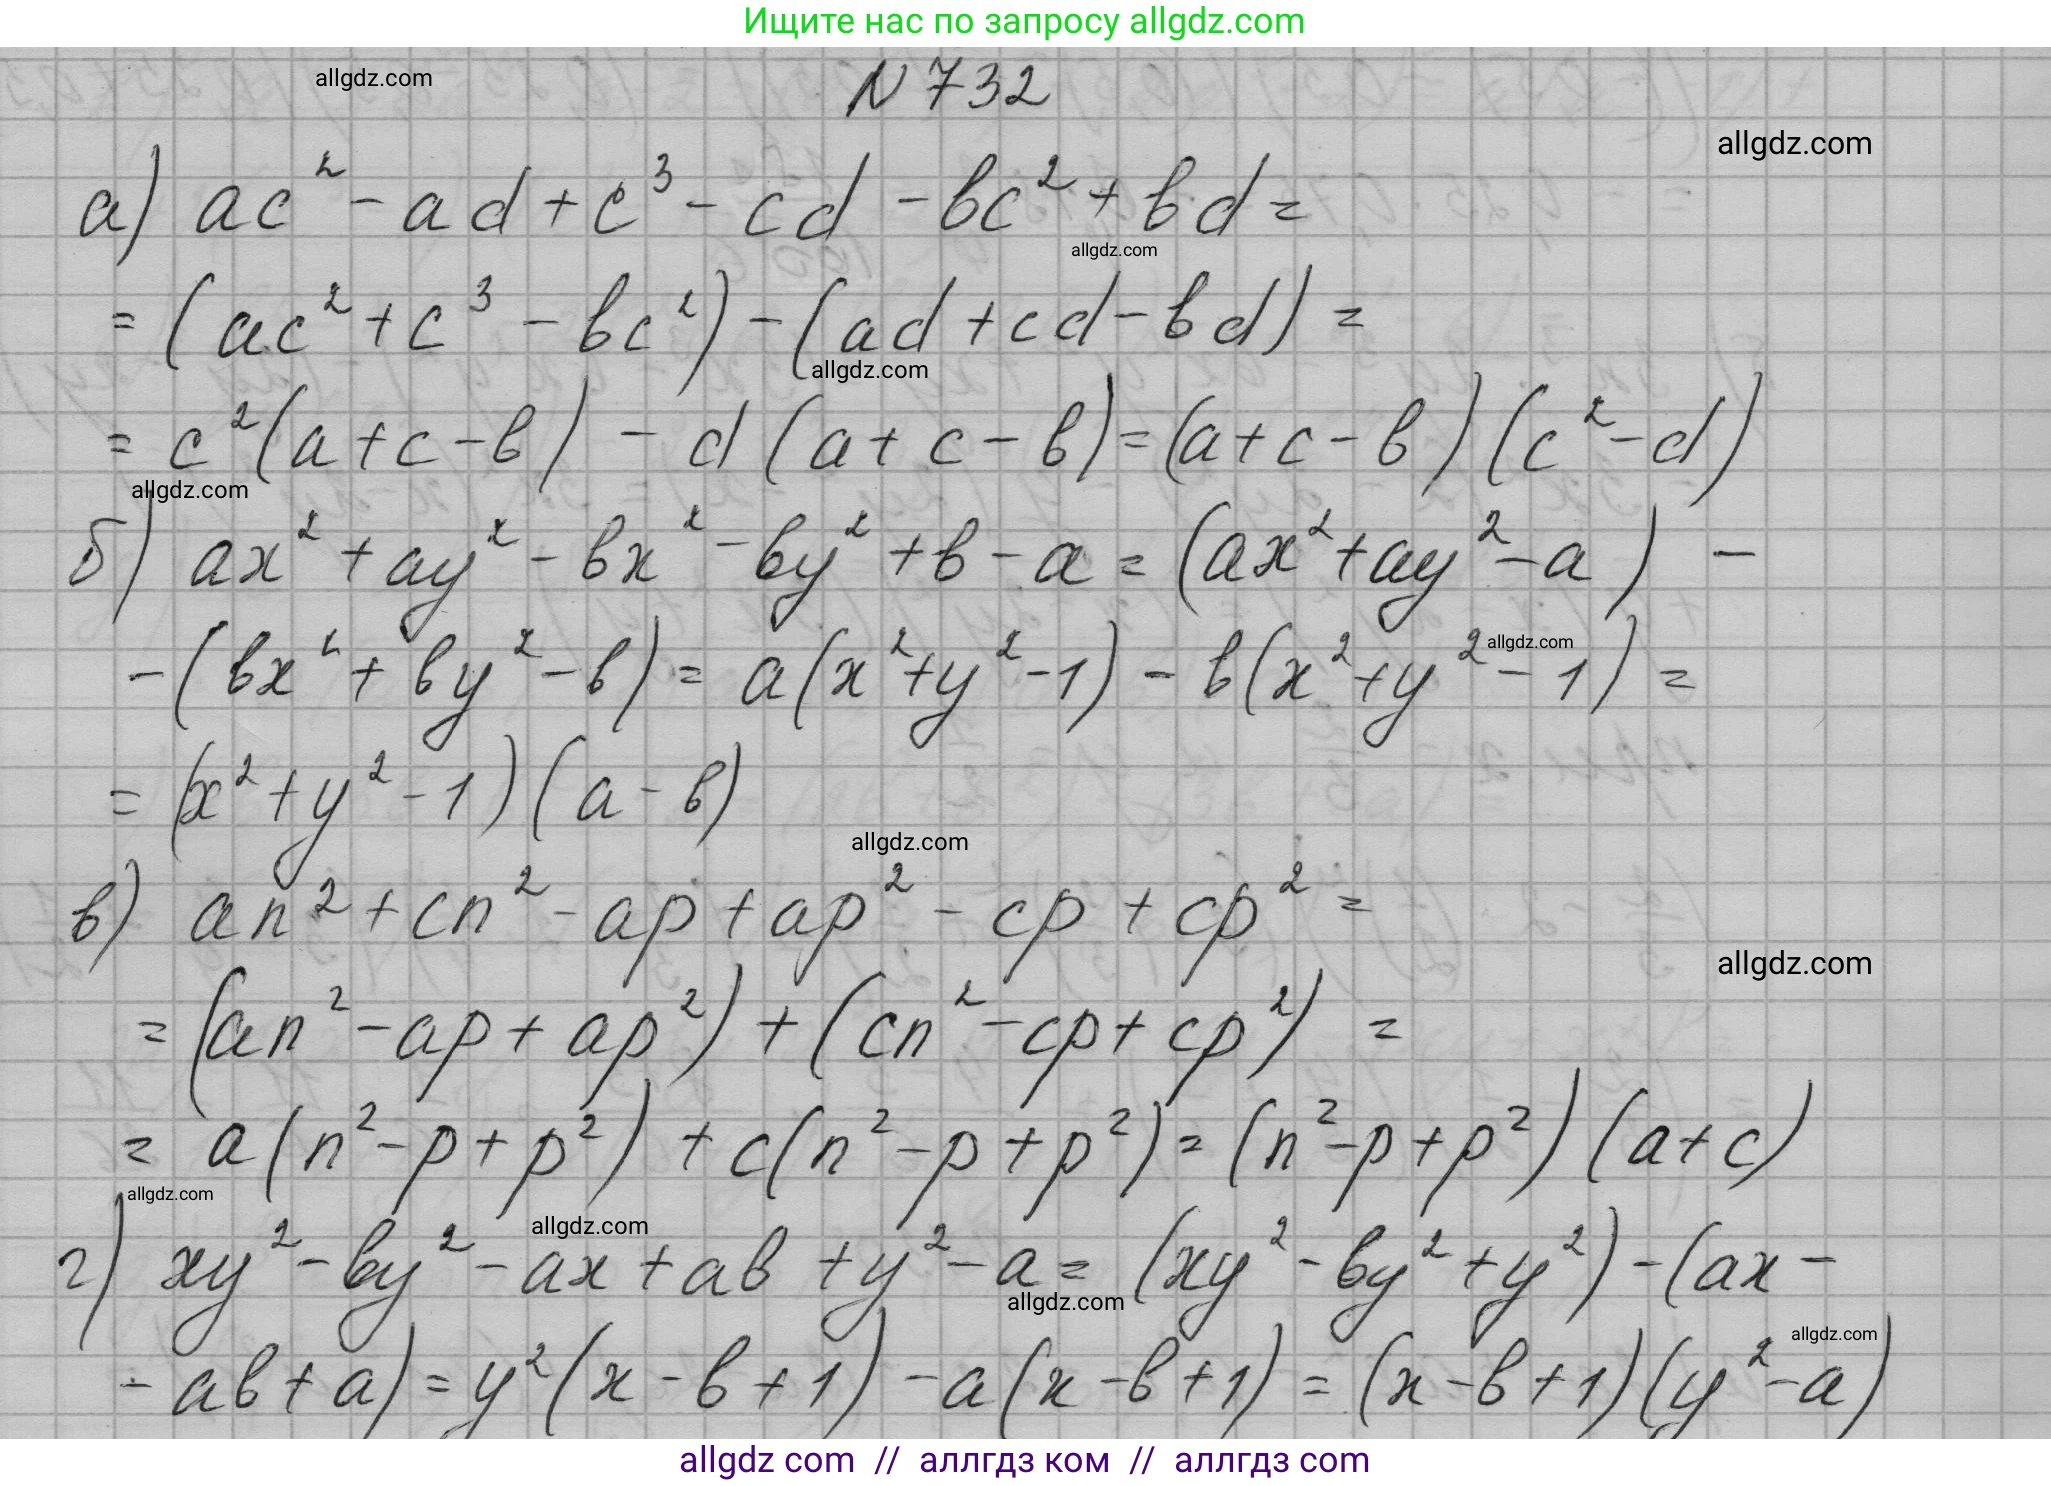 Ищите нас по запросу allgdz.com
allgdz.com
N 732
allgdz.com
а) ac² - ad + c³ - cd - bc² + bd =
allgdz.com
= (ac² + c³ - bc²) - (ad + cd - bd) =
allgdz.com
= c²(a + c - b) - d(a + c - b) = (a + c - b)(c² - d)
allgdz.com
б) ax² + ay² - bx² - by² + b - a = (ax² + ay² - a) -
allgdz.com
- (bx² + by² - b) = a(x² + y² - 1) - b(x² + y² - 1) =
= (x² + y² - 1)(a - b)
allgdz.com
в) an² + cn² - ap + ap² - cp + cp² =
allgdz.com
= (an² - ap + ap²) + (cn² - cp + cp²) =
= a(n² - p + p²) + c(n² - p + p²) = (n² - p + p²)(a + c)
allgdz.com
allgdz.com
г) xy² - by² - ax + ab + y² - a = (xy² - by² + y²) - (ax -
allgdz.com
allgdz.com
- ab + a) = y²(x - b + 1) - a(x - b + 1) = (x - b + 1)(y² - a)
allgdz com // аллгдз ком // аллгдз com